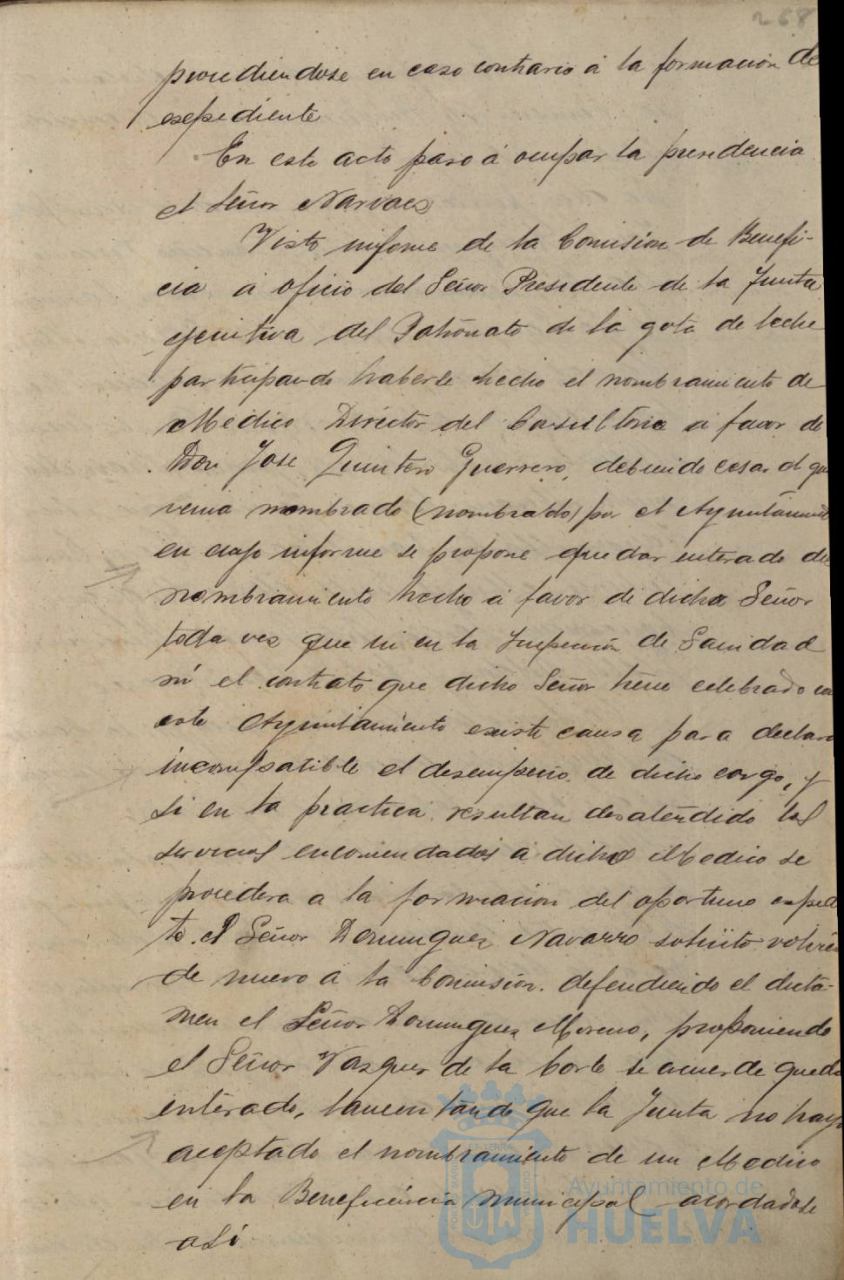 268
procediendose en caso contrario á la formación de
expediente
En este acto paso á ocupar la presidencia
el Señor Narvaez
Visto informe de la Comision de Benefi-
cia á oficio del Señor Presidente de la Junta
ejecutiva del Patronato de la gota de leche
participando haberle hecho el nombramiento de
Médico Director del Consultorio á favor de
Don Jose Quintero Guerrero, debiendo cesar el que
venia nombrado (nombrado) por el Ayuntamient
en cuyo informe se propone quedar enterado de
nombramiento hecho á favor de dicho Señor
toda vez que ni en la Inspección de Sanidad
ni el contrato que dicho Señor tiene celebrado con
este Ayuntamiento existe causa para declara
incompatible el desempeño de dicho cargo, y
si en la practica resultan desatendido los
servicios encomendados á dicho Medico se
procedera a la formacion del oportuno expedi
te. el Señor Dominguez Navarro solicito
de nuevo á la Comisión. defendiendo el dicta-
men el Señor Dominguez Moreno, proponiendo
el Señor Vazquez de la Corte se acuerde queda
enterado, lamentando que la Junta no haya
aceptado el nombramiento de un Medico
en la Beneficencia municipal acordadose
asi
Ayuntamiento de
HUELVA